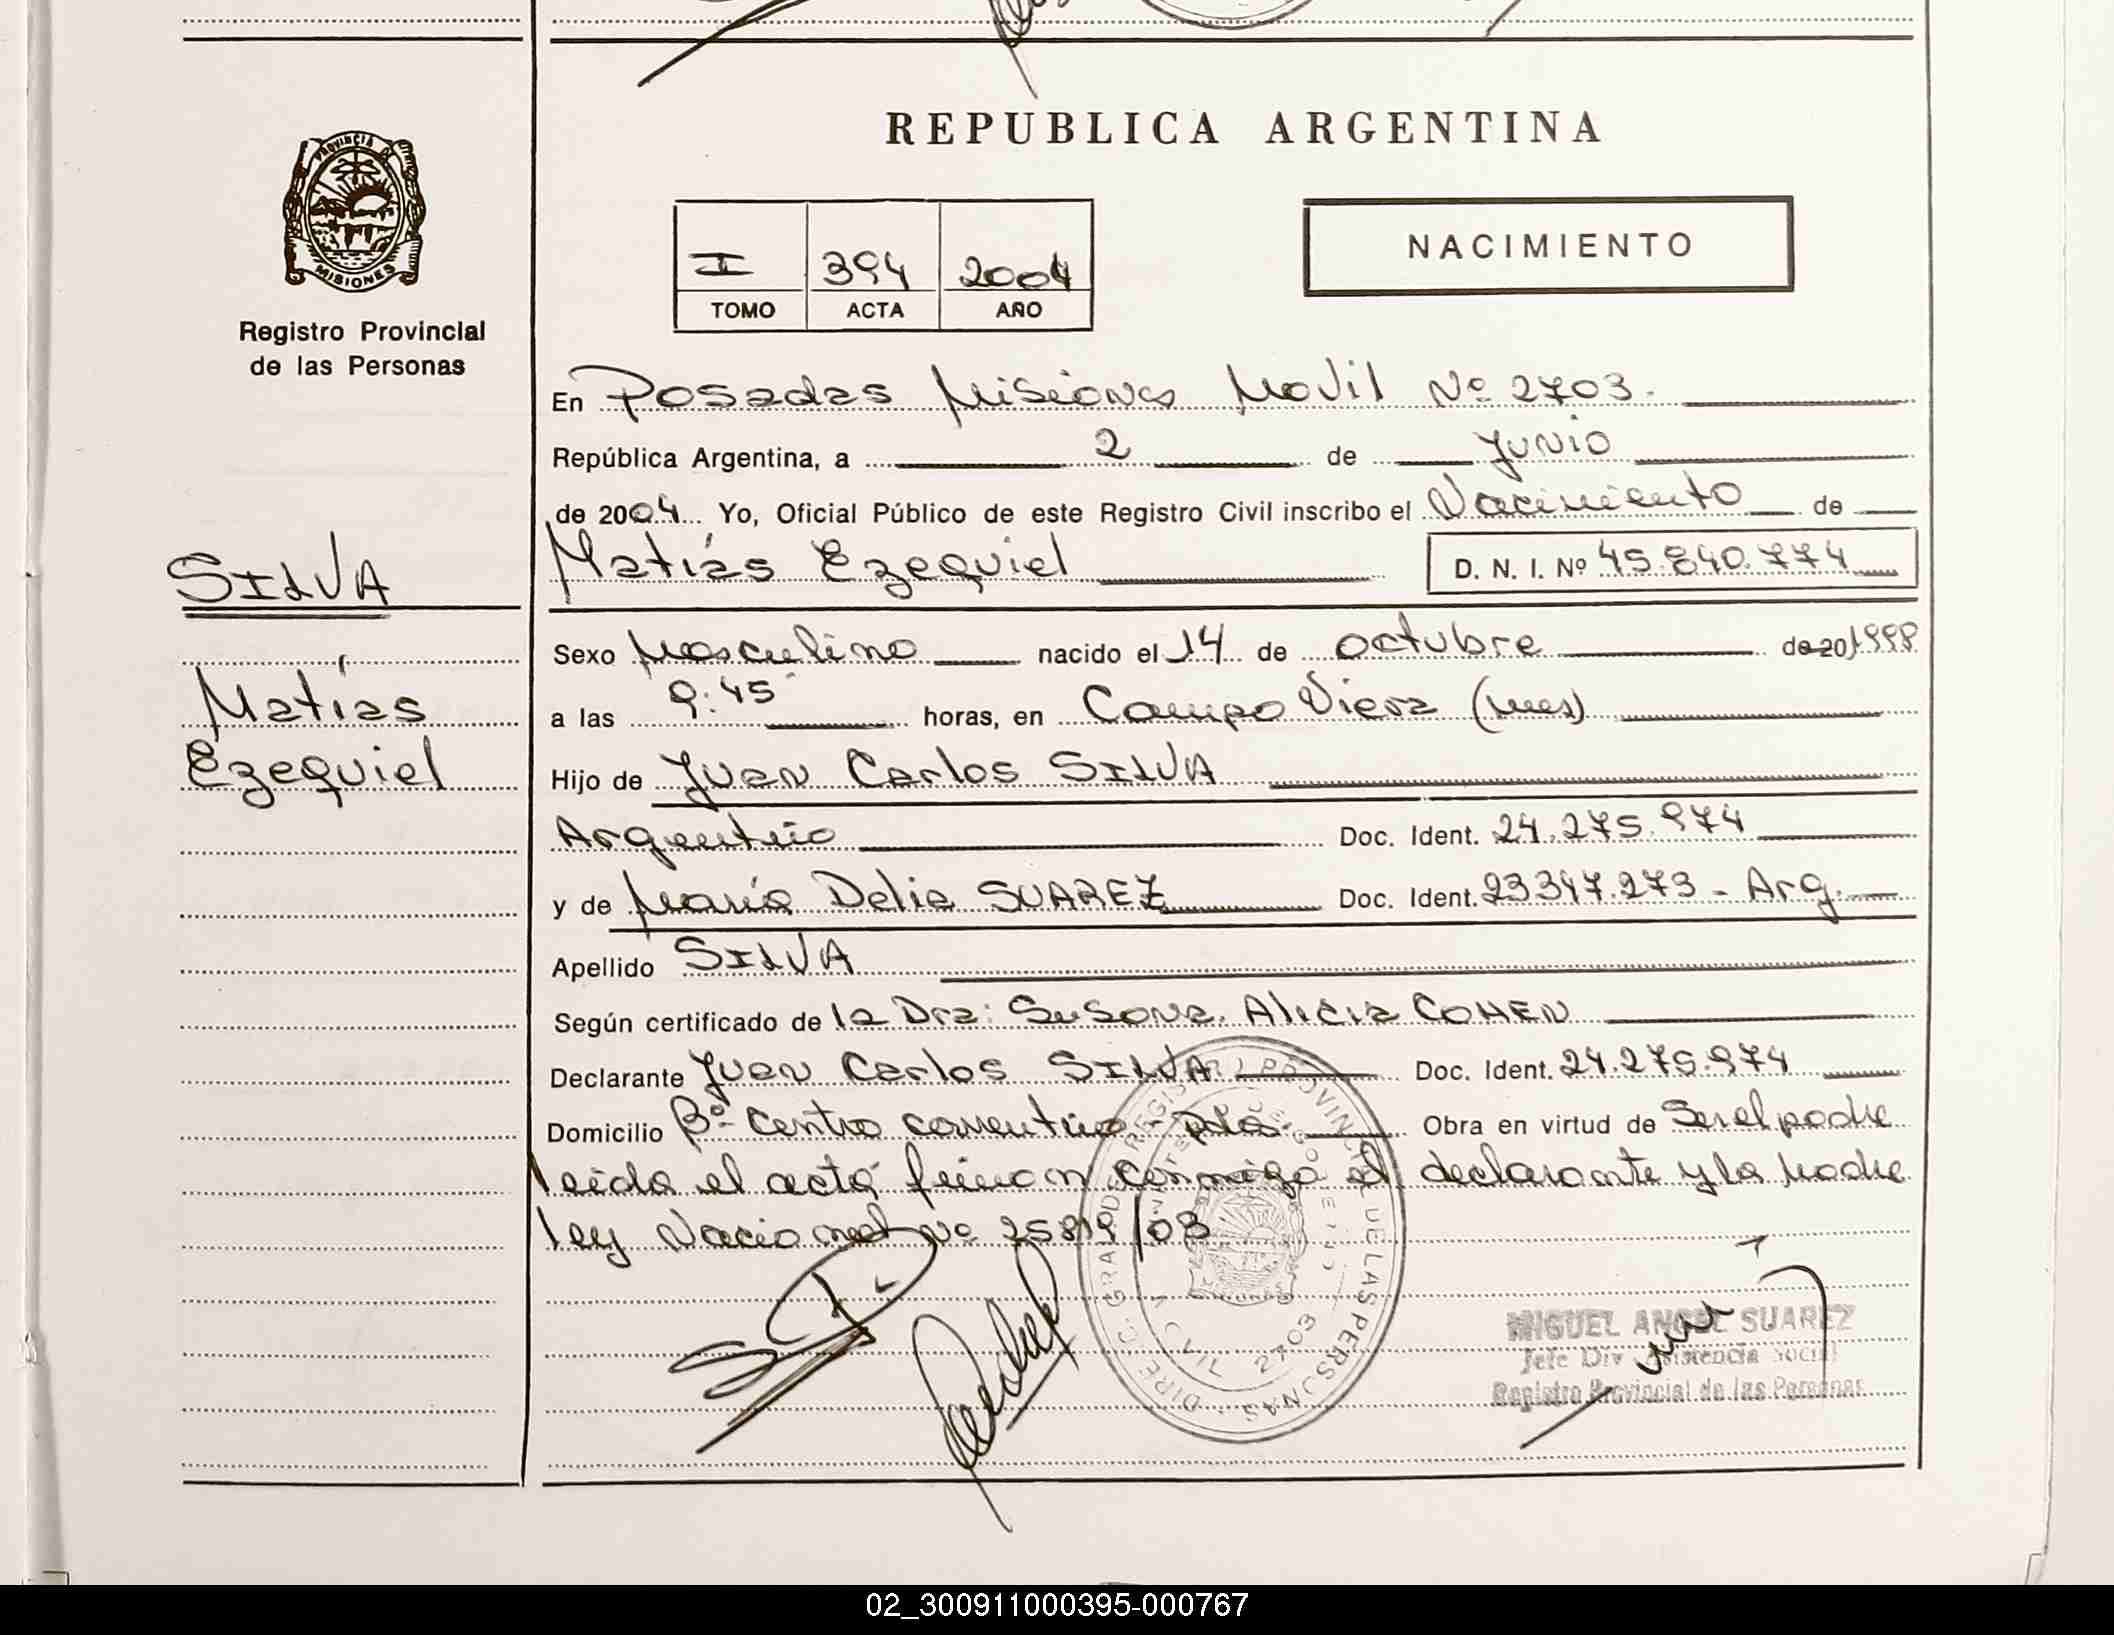 REPUBLICA ARGENTINA
PROVINCIA DE
MISIONES
Registro Provincial
de las Personas
I 394 2004
TOMO ACTA AÑO
NACIMIENTO
En Posadas Misiones Movil Nº 2703.
República Argentina, a 2 de Junio
de 2004 Yo, Oficial Público de este Registro Civil inscribo el Nacimiento de
SILVA
Matías Ezequiel D. N. I. Nº 45.840.774
Sexo Masculino nacido el 14 de octubre de 20 1998
Matías
a las 9:45 horas, en Campo Viera (Mnes)
Ezequiel
Hijo de Juan Carlos SILVA
Argentino Doc. Ident. 24.275.974
y de María Delia SUAREZ Doc. Ident. 23347.273 - Arg.
Apellido SILVA
Según certificado de la Dra: Susana Alicia COHEN
Declarante Juan Carlos SILVA Doc. Ident. 24.275.974
Domicilio Bº Centro correntino - pdas. Obra en virtud de Ser el padre
leída el acta firman conmigo el declarante y la Madre
ley Nacional Nº 25819/03
DIREC. GRAL DE REGISTRO PROVINCIAL DE LAS PERSONAS
2703
MIGUEL ANGEL SUAREZ
Jefe Div Asistencia Social
Registro Provincial de las Personas
02_300911000395-000767